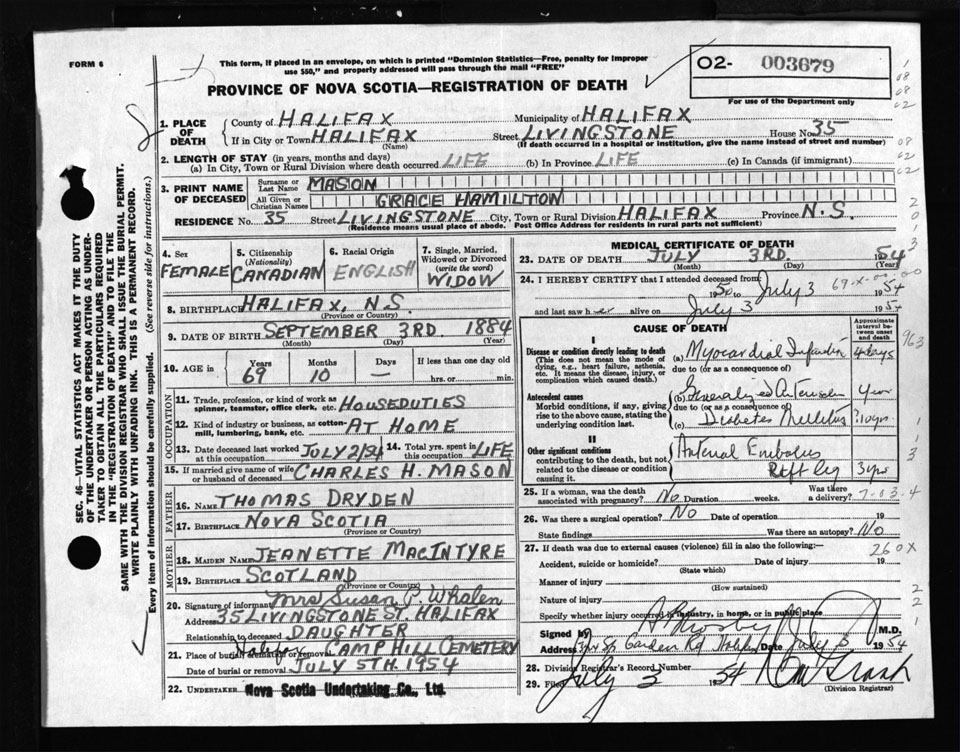 FORM 6
This form, if placed in an envelope, on which is printed "Dominion Statistics—Free, penalty for improper
use $50," and properly addressed will pass through the mail "FREE"
O2- 003679
For use of the Department only
PROVINCE OF NOVA SCOTIA—REGISTRATION OF DEATH
1. PLACE OF DEATH
County of HALIFAX Municipality of HALIFAX
If in City or Town HALIFAX (Name) Street LIVINGSTONE House No. 35
(If death occurred in a hospital or institution, give the name instead of street and number)
2. LENGTH OF STAY (in years, months and days)
(a) In City, Town or Rural Division where death occurred LIFE (b) In Province LIFE (c) In Canada (if immigrant)
3. PRINT NAME OF DECEASED
Surname or Last Name MASON
All Given or Christian Names GRACE HAMILTON
RESIDENCE No. 35 Street LIVINGSTONE City, Town or Rural Division HALIFAX Province N.S.
(Residence means usual place of abode. Post Office Address for residents in rural parts not sufficient)
4. Sex FEMALE
5. Citizenship (Nationality) CANADIAN
6. Racial Origin ENGLISH
7. Single, Married, Widowed or Divorced (write the word) WIDOW
8. BIRTHPLACE HALIFAX, N.S.
(Province or Country)
9. DATE OF BIRTH SEPTEMBER 3RD 1884
(Month) (Day) (Year)
10. AGE in Years 69 Months 10 Days — If less than one day hrs. or min.
OCCUPATION
11. Trade, profession, or kind of work as spinner, teamster, office clerk, etc. HOUSEDUTIES
12. Kind of industry or business, as cotton-mill, lumbering, bank, etc. AT HOME
13. Date deceased last worked at this occupation JULY 2/54 14. Total yrs. spent in this occupation LIFE
15. If married give name of wife or husband of deceased CHARLES H. MASON
FATHER
16. Name THOMAS DRYDEN
17. Birthplace NOVA SCOTIA
(Province or Country)
MOTHER
18. MAIDEN NAME JEANETTE MACINTYRE
19. BIRTHPLACE SCOTLAND
(Province or Country)
20. Signature of informant Mrs Susan P. Whalen
Address 35 LIVINGSTONE ST. HALIFAX
Relationship to deceased DAUGHTER
21. Place of burial, cremation or removal Halifax CAMP HILL CEMETERY
Date of burial or removal JULY 5TH. 1954
22. UNDERTAKER Nova Scotia Undertaking Co., Ltd.
MEDICAL CERTIFICATE OF DEATH
23. DATE OF DEATH JULY 3RD. 1954
(Month) (Day)
24. I HEREBY CERTIFY that I attended deceased from
1950 to July 3 1954
and last saw her alive on July 3 1954
CAUSE OF DEATH
Approximate interval between onset and death
I
Disease or condition directly leading to death
(This does not mean the mode of dying, e.g., heart failure, asthenia, etc. It means the disease, injury, or complication which caused death.)
(a) Myocardial Infarction 4 days
due to (or as a consequence of)
Antecedent causes
Morbid conditions, if any, giving rise to the above cause, stating the underlying condition last.
(b) Generalized
due to (or as a consequence of)
(c) Diabetes Mellitus
II
Other significant conditions
contributing to the death, but not related to the disease or condition causing it.
Arterial Embolus
Left Leg 3 yrs
25. If a woman, was the death associated with pregnancy? No Duration weeks. Was there a delivery?
26. Was there a surgical operation? No Date of operation 19
State findings Was there an autopsy? No
27. If death was due to external causes (violence) fill in also the following:—
260X
Accident, suicide or homicide? Date of injury 19
(State which)
Manner of injury
(How sustained)
Nature of injury
Specify whether injury occurred in industry, in home, or in public place
Signed by M.D.
Address Garden Rd Halifax Date July 3 1954
28. Division Registrar's Record Number
29. Filed July 3 1954
(Division Registrar)
SEC. 46—VITAL STATISTICS ACT MAKES IT THE DUTY
OF THE UNDERTAKER OR PERSON ACTING AS UNDER-
TAKER TO OBTAIN ALL THE PARTICULARS REQUIRED
IN THE "REGISTRATION OF DEATH" AND TO FILE THE
SAME WITH THE DIVISION REGISTRAR WHO SHALL ISSUE THE BURIAL PERMIT.
WRITE PLAINLY WITH UNFADING INK. THIS IS A PERMANENT RECORD.
Every item of information should be carefully supplied. (See reverse side for instructions.)